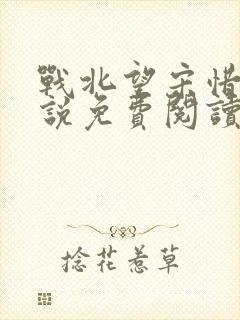 戰北望宋惜
說免費閱讀
捻花惹草